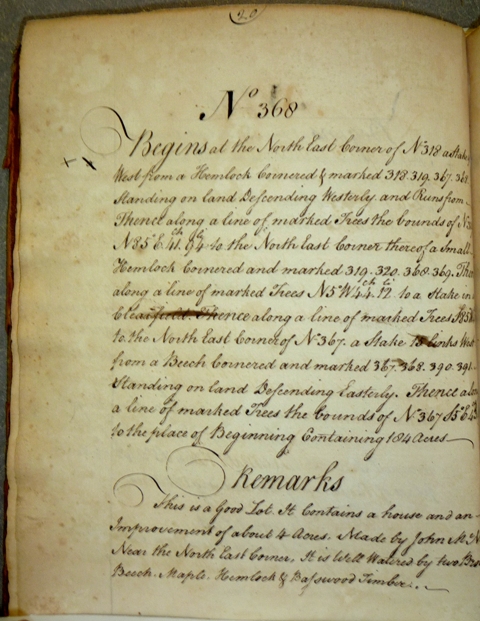 20
No 368
Begins at the North East Corner of No 318 a Stake
West from a Hemlock Cornered & marked 318. 319. 367. 368.
Standing on land Descending Westerly and Runs from
Thence along a line of marked Trees the bounds of No
N85°E. 41. 94 to the North East Corner thereof a Small
ch li
Hemlock Cornered and marked 319. 320. 368. 369. Thence
along a line of marked Trees N5°W 44. 12 to a Stake in
ch li
Thence along a line of marked Trees S85°W
to the North East Corner of No 367. a Stake links West
from a Beech Cornered and marked 367. 368. 390. 391.
Standing on land Descending Easterly. Thence along
a line of marked Trees the bounds of No 367 S5°E
to the place of Beginning Containing 184 Acres
Remarks
This is a Good Lot. It Contains a house and an
Improvement of about 4 Acres. Made by John
Near the North East Corner, It is Well Watered by two
Beech. Maple. Hemlock & Basswood Timber.